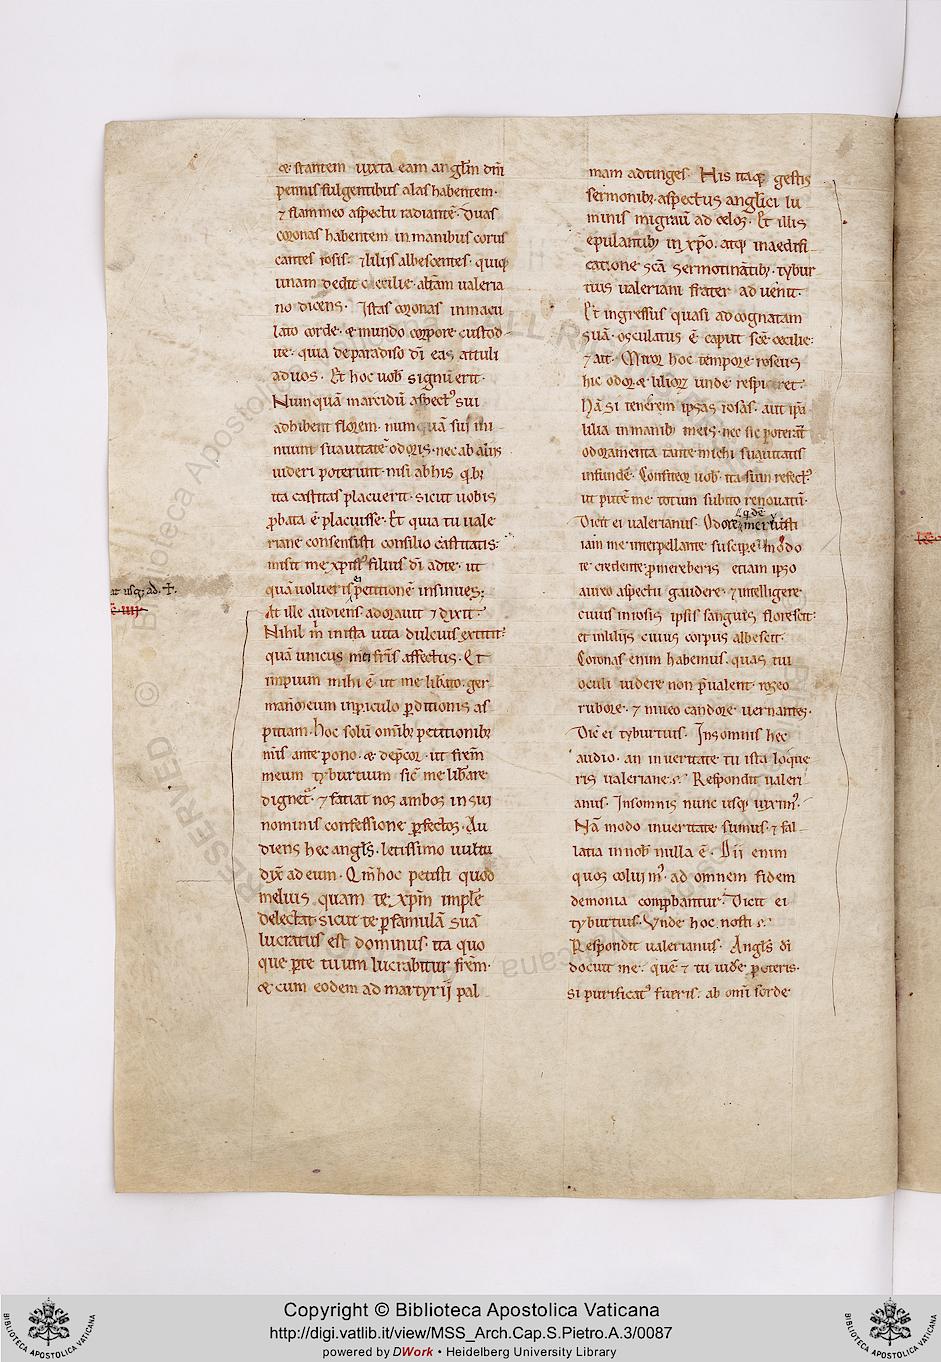 & stantem iuxta eam angl̄m dn̄i
pennis fulgentibus alas habentem.
⁊ flammeo aspectu radiantē. Duas
coronas habentem in manibus corus
cantes rosis. ⁊ liliis albescentes. quiq;
unam dedit cecilie. alt̄am ualeria
no dicens. Istas coronas inmacu
lato corde. & mundo corpore custod-
ite. quia de paradiso dī eas attuli
ad uos. Et hoc uob̄ signū erit.
Nunquā marcidū aspectꝰ sui
adhibent florem. nunquā sui mi-
nuunt suauitatē odoris. nec ab aliis
uideri poterunt. nisi ab his q̄b;
ita castitas placuerit. sicut uobis
ꝓbata ē placuisse. Et quia tu uale
riane consensisti consilio castitatis:
misit me xp̄ist̄ filius dī ad te. ut
quā uolueris petitionē insinues;
At ille audiens adorauit ⁊ dixit.
Nihil m̄ in ista uita dulcius extitit.
quā unicus mei fr̄is affectus. Et
impium mihi ē. ut me lib̄ato. ger
manōeum in ꝑiculo ꝑditionis as
pitiam. Hoc solū omīb; petitionib;
m̄is ante pono. & dep̄cor. ut fr̄em
meum tyburtium sic̄ me lib̄are
dignet̄. ⁊ fatiat nos ambos in sui
nominis confessione ꝑfectos. Au
diens hec angl̄s. letissimo uultu
dix̄ ad eum. Qm̄ hoc petisti quod
melius quam te. xp̄m imple̅
delectat. sicut te ꝑ famulā suā
lucratus est dominus. ita quo
que ꝑ te tuum lucrabitur fr̄em.
& cum eodem ad martyrii pal
at usq; ad. ✝.
mam adtinges. His itaq; gestis
sermonib;. aspectus anglici lu
minis migrauit ad celos. Et illis
epulantib; in xp̄o. atq; in aedifi-
catione sc̄a sermotinātib;. tybur
tius ualeriani frater aduenit.
Et ingressus quasi ad cognatam
suā. osculatus ē caput sc̄e cecilie:
⁊ ait. Miror hoc tempore roseus
hic odor & lilior̄ unde respiraret.
Nā si tenerem ipsas rosas. aut ip̄a
lilia in manib; meis. nec sic poterant̄
odoramenta tante michi suauitatis
infunde̅. Confiteor uob̄. ita sum refectꝰ.
ut putē me totum subito renouatū.
Dicit ei ualerianus. Odorē meruisti
iam me interpellante suscipe̅ modo
te credente. ꝓmereberis etiam ipso
aureo aspectu gaudere. ⁊ intelligere
cuius in rosis ipsis sanguis florescit:
et in liliis cuius corpus albescit.
Coronas enim habemus. quas tui
oculi uidere non p̄ualent. roseo
rubore. ⁊ niueo candore uernantes.
Dic̄ ei tyburtius. In somnis hec
audio. an in ueritate tu ista loque
ris ualeriane. Respondit ualeri
anus. In somnis nunc usq; uiximꝰ.
Nā modo in ueritate sumus. ⁊ fal-
latia in nob̄ nulla ē. Dii enim
quos coluimꝰ. ad omnem fidem
demonia comꝓbantur. Dicit ei
tyburtius. Unde hoc nosti.
Respondit ualerianus. Angl̄s dī
docuit me. quē ⁊ tu uide̅ poteris.
si purificatꝰ fueris. ab om̄i sorde
© Biblioteca Apostolica Vaticana
ALL RIGHTS RESERVED
Copyright © Biblioteca Apostolica Vaticana
http://digi.vatlib.it/view/MSS_Arch.Cap.S.Pietro.A.3/0087
powered by DWork • Heidelberg University Library
BIBLIOTECA APOSTOLICA VATICANA
BIBLIOTECA APOSTOLICA VATICANA